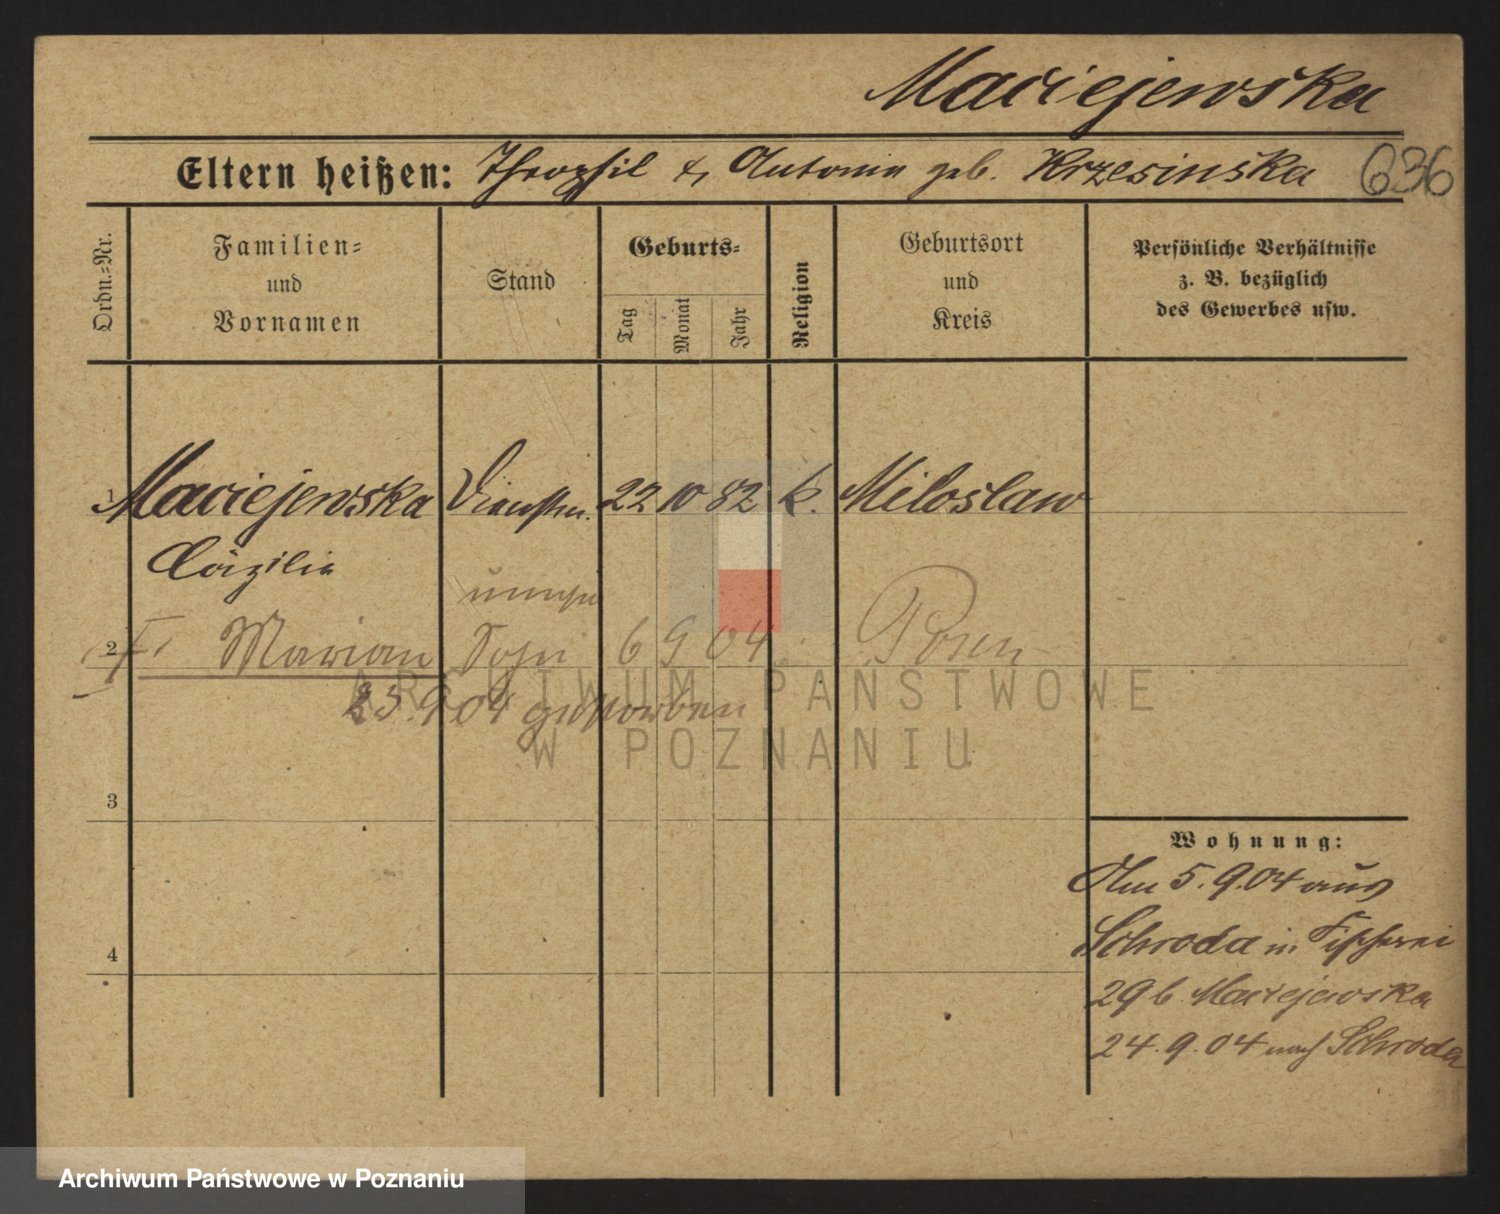 Maciejewska
Eltern heißen: Theophil & Antonie geb. Krzesinska 636
Ordn.-Nr.
Familien-
und
Vornamen
Stand
Geburts-
Tag
Monat
Jahr
Religion
Geburtsort
und
Kreis
Persönliche Verhältnisse
z. B. bezüglich
des Gewerbes usw.
1 Maciejewska Dienstm. 22 10 82 k. Miloslaw
Cäzilie
unehe
2 Marian Sohn 6 9 04 Posen
23.9.04 gestorben
ARCHIWUM PAŃSTWOWE
W POZNANIU
3
4
Wohnung:
Am 5.9.04 aus
Schroda in Fischerei
29 b. Maciejewska
24.9.04 nach Schroda
Archiwum Państwowe w Poznaniu